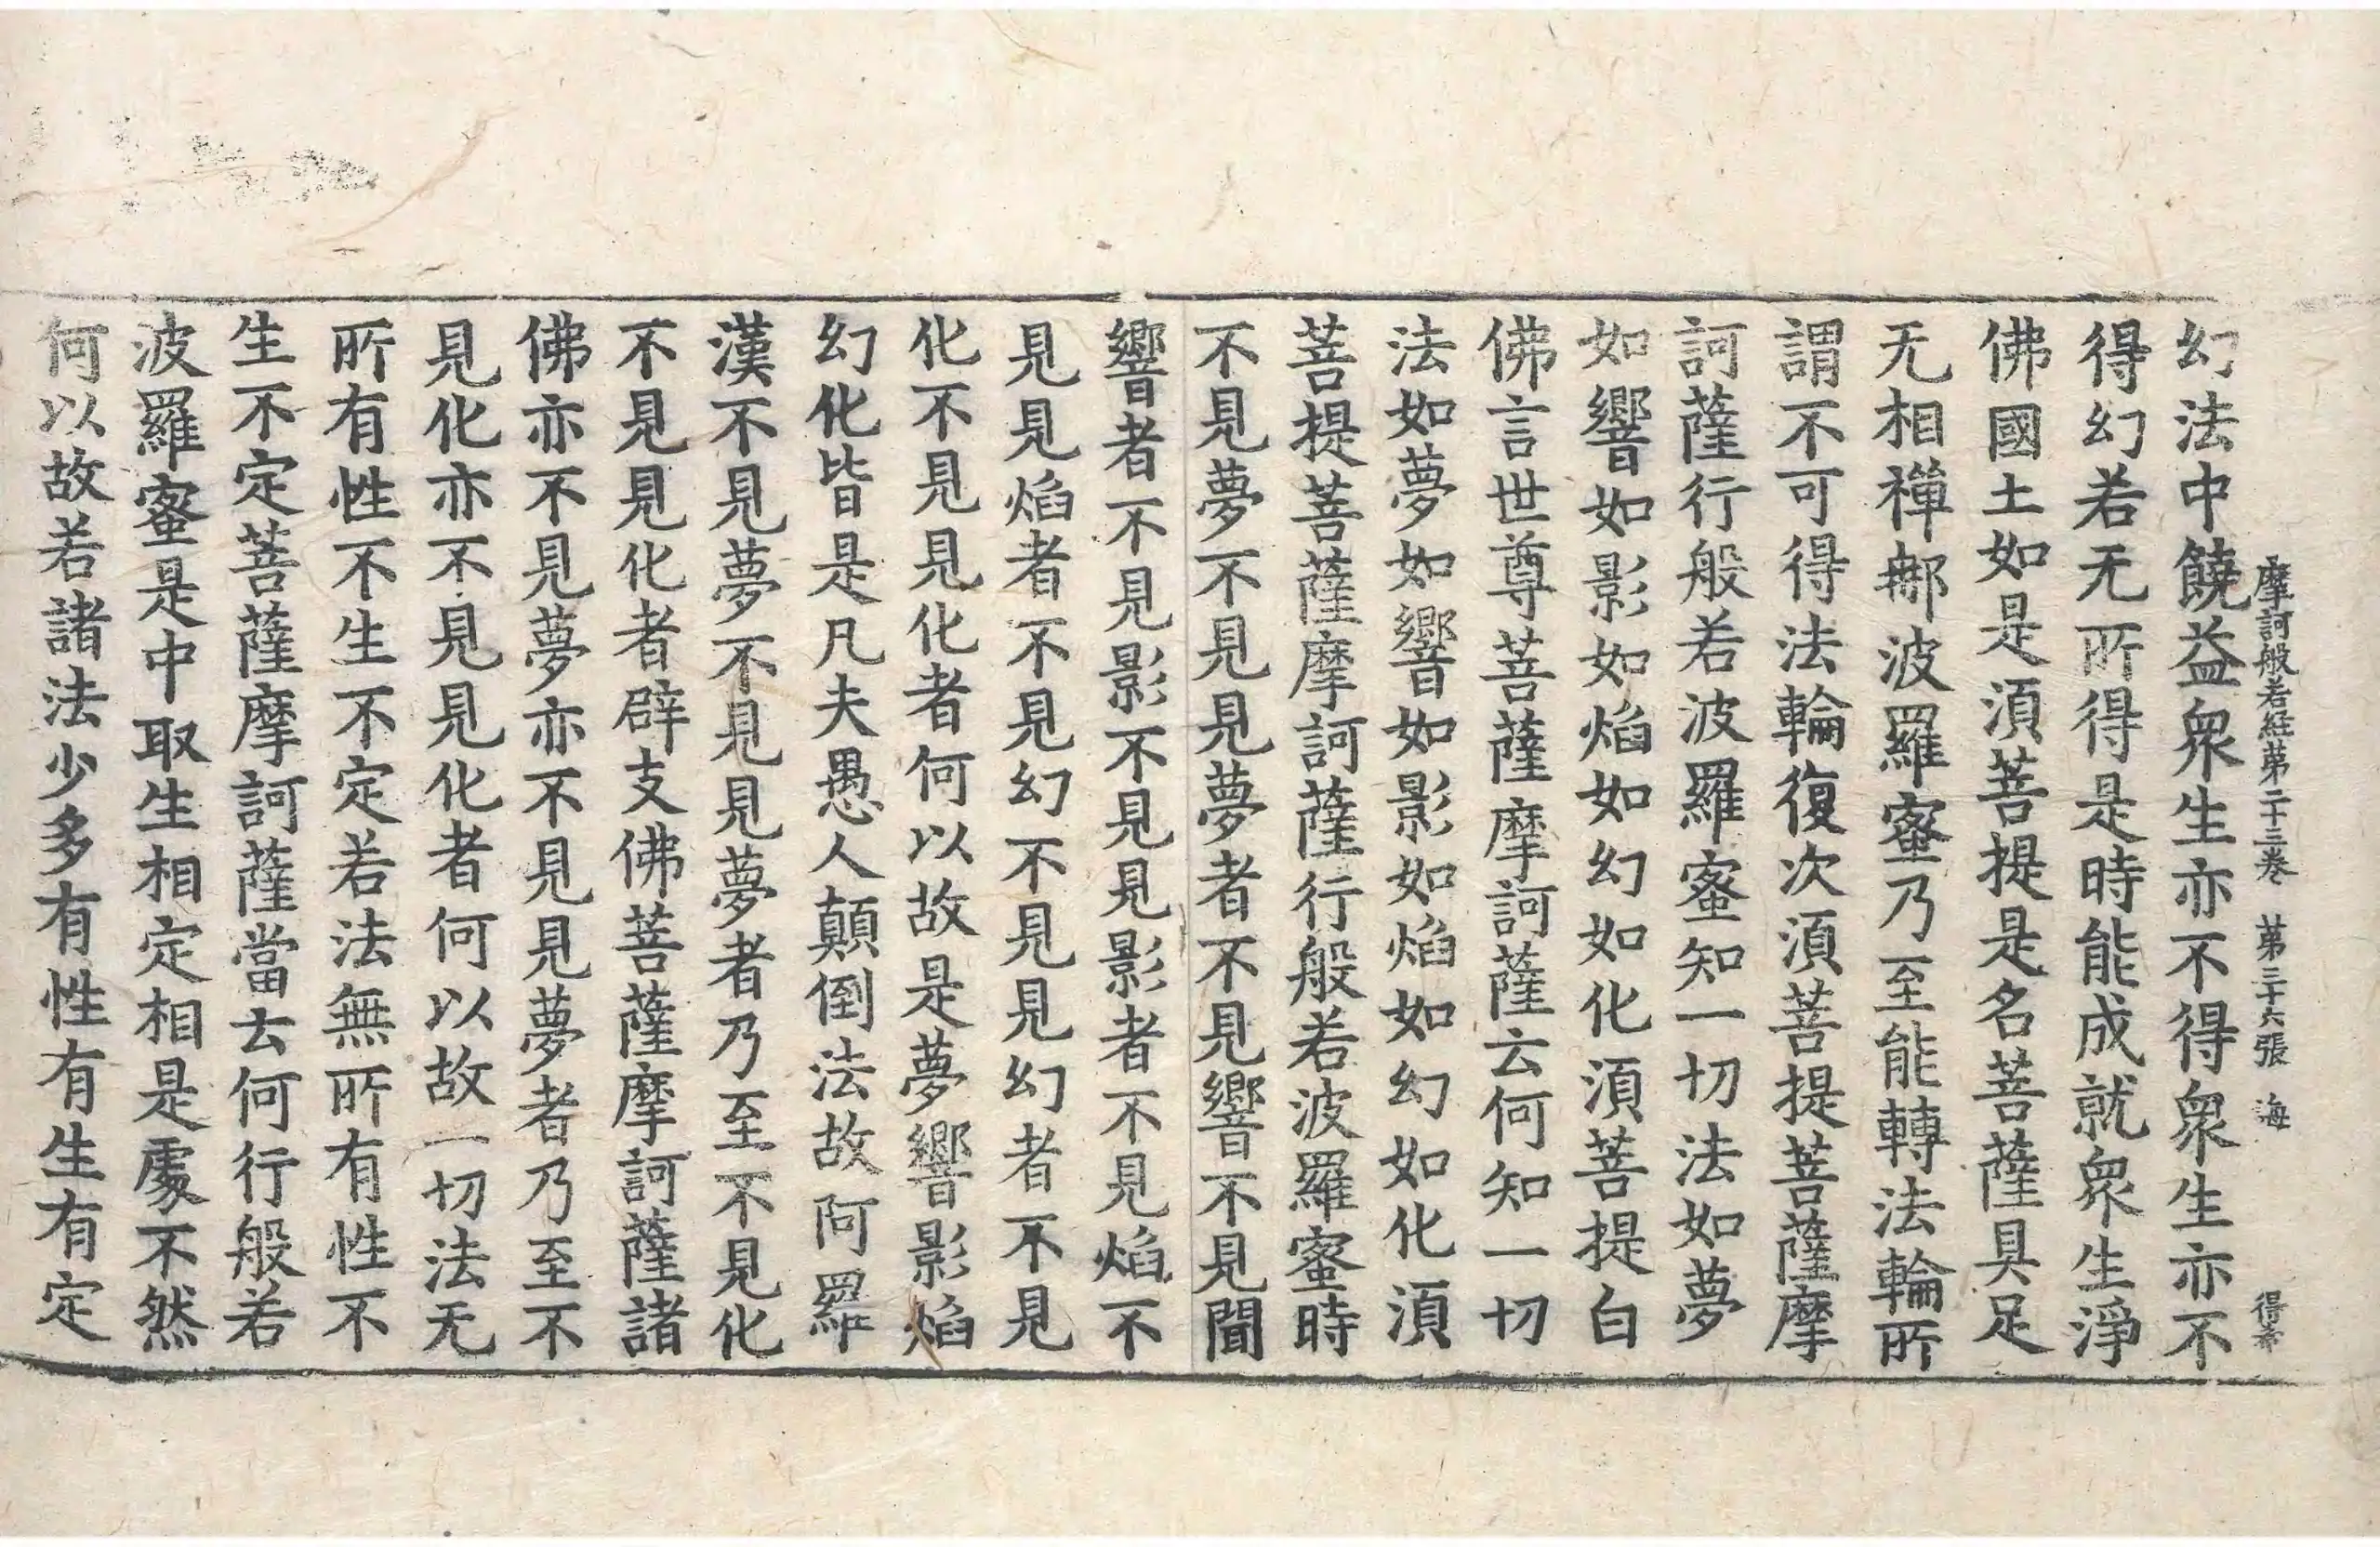 摩訶般若経第二十三卷 第三十六張 海 得奇
幻法中饒益衆生亦不得衆生亦不
得幻若无所得是時能成就衆生淨
佛國土如是湏菩提是名菩薩具足
无相禪那波羅蜜乃至能轉法輪所
謂不可得法輪復次湏菩提菩薩摩
訶薩行般若波羅蜜知一切法如夢
如響如影如焰如幻如化湏菩提白
佛言世尊菩薩摩訶薩云何知一切
法如夢如響如影如焰如幻如化湏
菩提菩薩摩訶薩行般若波羅蜜時
不見夢不見見夢者不見響不見聞
響者不見影不見見影者不見焰不
見見焰者不見幻不見見幻者不見
化不見見化者何以故是夢響影焰
幻化皆是凡夫愚人顛倒法故阿羅
漢不見夢不見見夢者乃至不見化
不見見化者辟支佛菩薩摩訶薩諸
佛亦不見夢亦不見見夢者乃至不
見化亦不見見化者何以故一切法无
所有性不生不定若法無所有性不
生不定菩薩摩訶薩當云何行般若
波羅蜜是中取生相定相是處不然
何以故若諸法少多有性有生有定